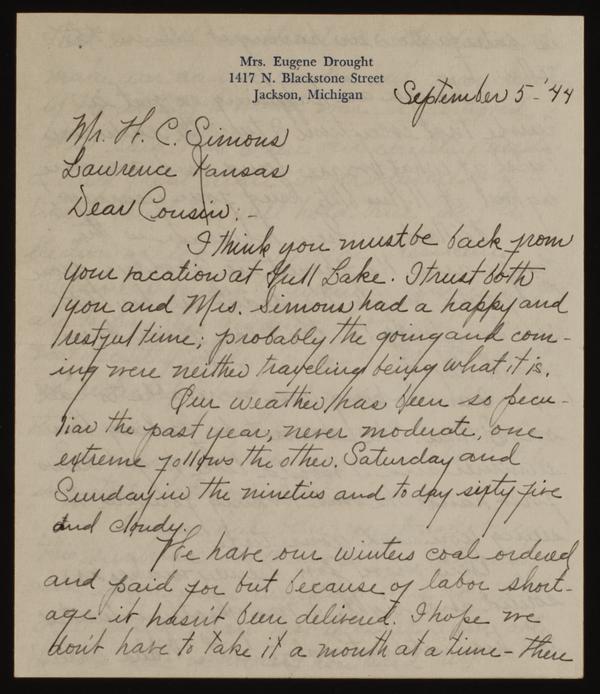 Mrs. Eugene Drought
1417 N. Blackstone Street
Jackson, Michigan
September 5-'44
Mr. H. C. Simons
Lawrence Kansas
Dear Cousin:-
I think you must be back from
your vacation at Gull Lake. I trust both
you and Mrs. Simons had a happy and
restful time; probably the going and com-
ing were neither traveling being what it is.
Our weather has been so pecu-
liar the past year, never moderate, one
extreme follows the other. Saturday and
Sunday in the nineties and today sixty five
and cloudy.
We have our winters coal ordered
and paid for but because of labor short-
age it hasn't been delivered. I hope we
don't have to take it a month at a time - there